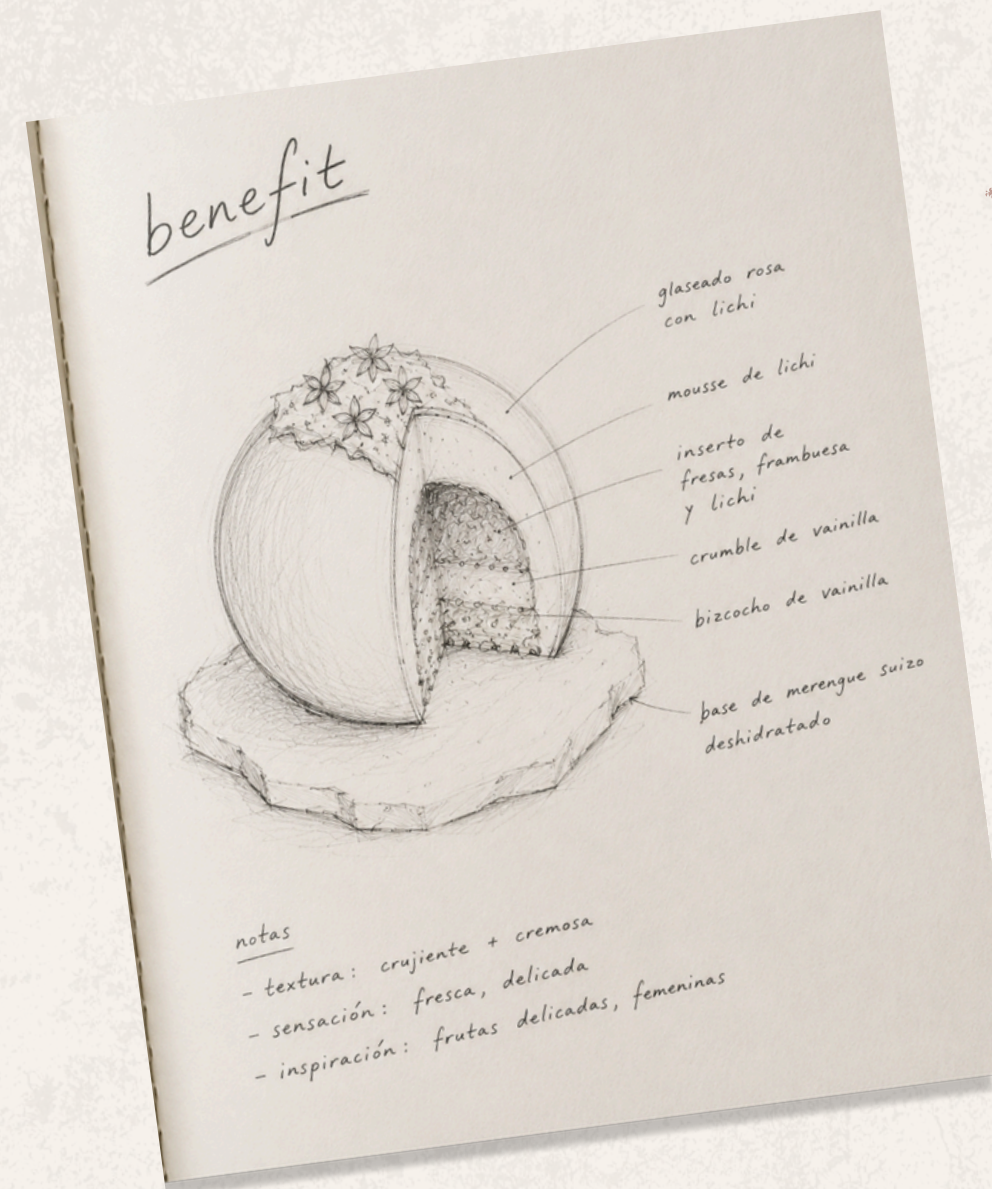 benefit
glaseado rosa
con lichi
mousse de lichi
inserto de
fresas, frambuesa
y lichi
crumble de vainilla
bizcocho de vainilla
base de merengue suizo
deshidratado
notas
- textura: crujiente + cremosa
- sensación: fresca, delicada
- inspiración: frutas delicadas, femeninas